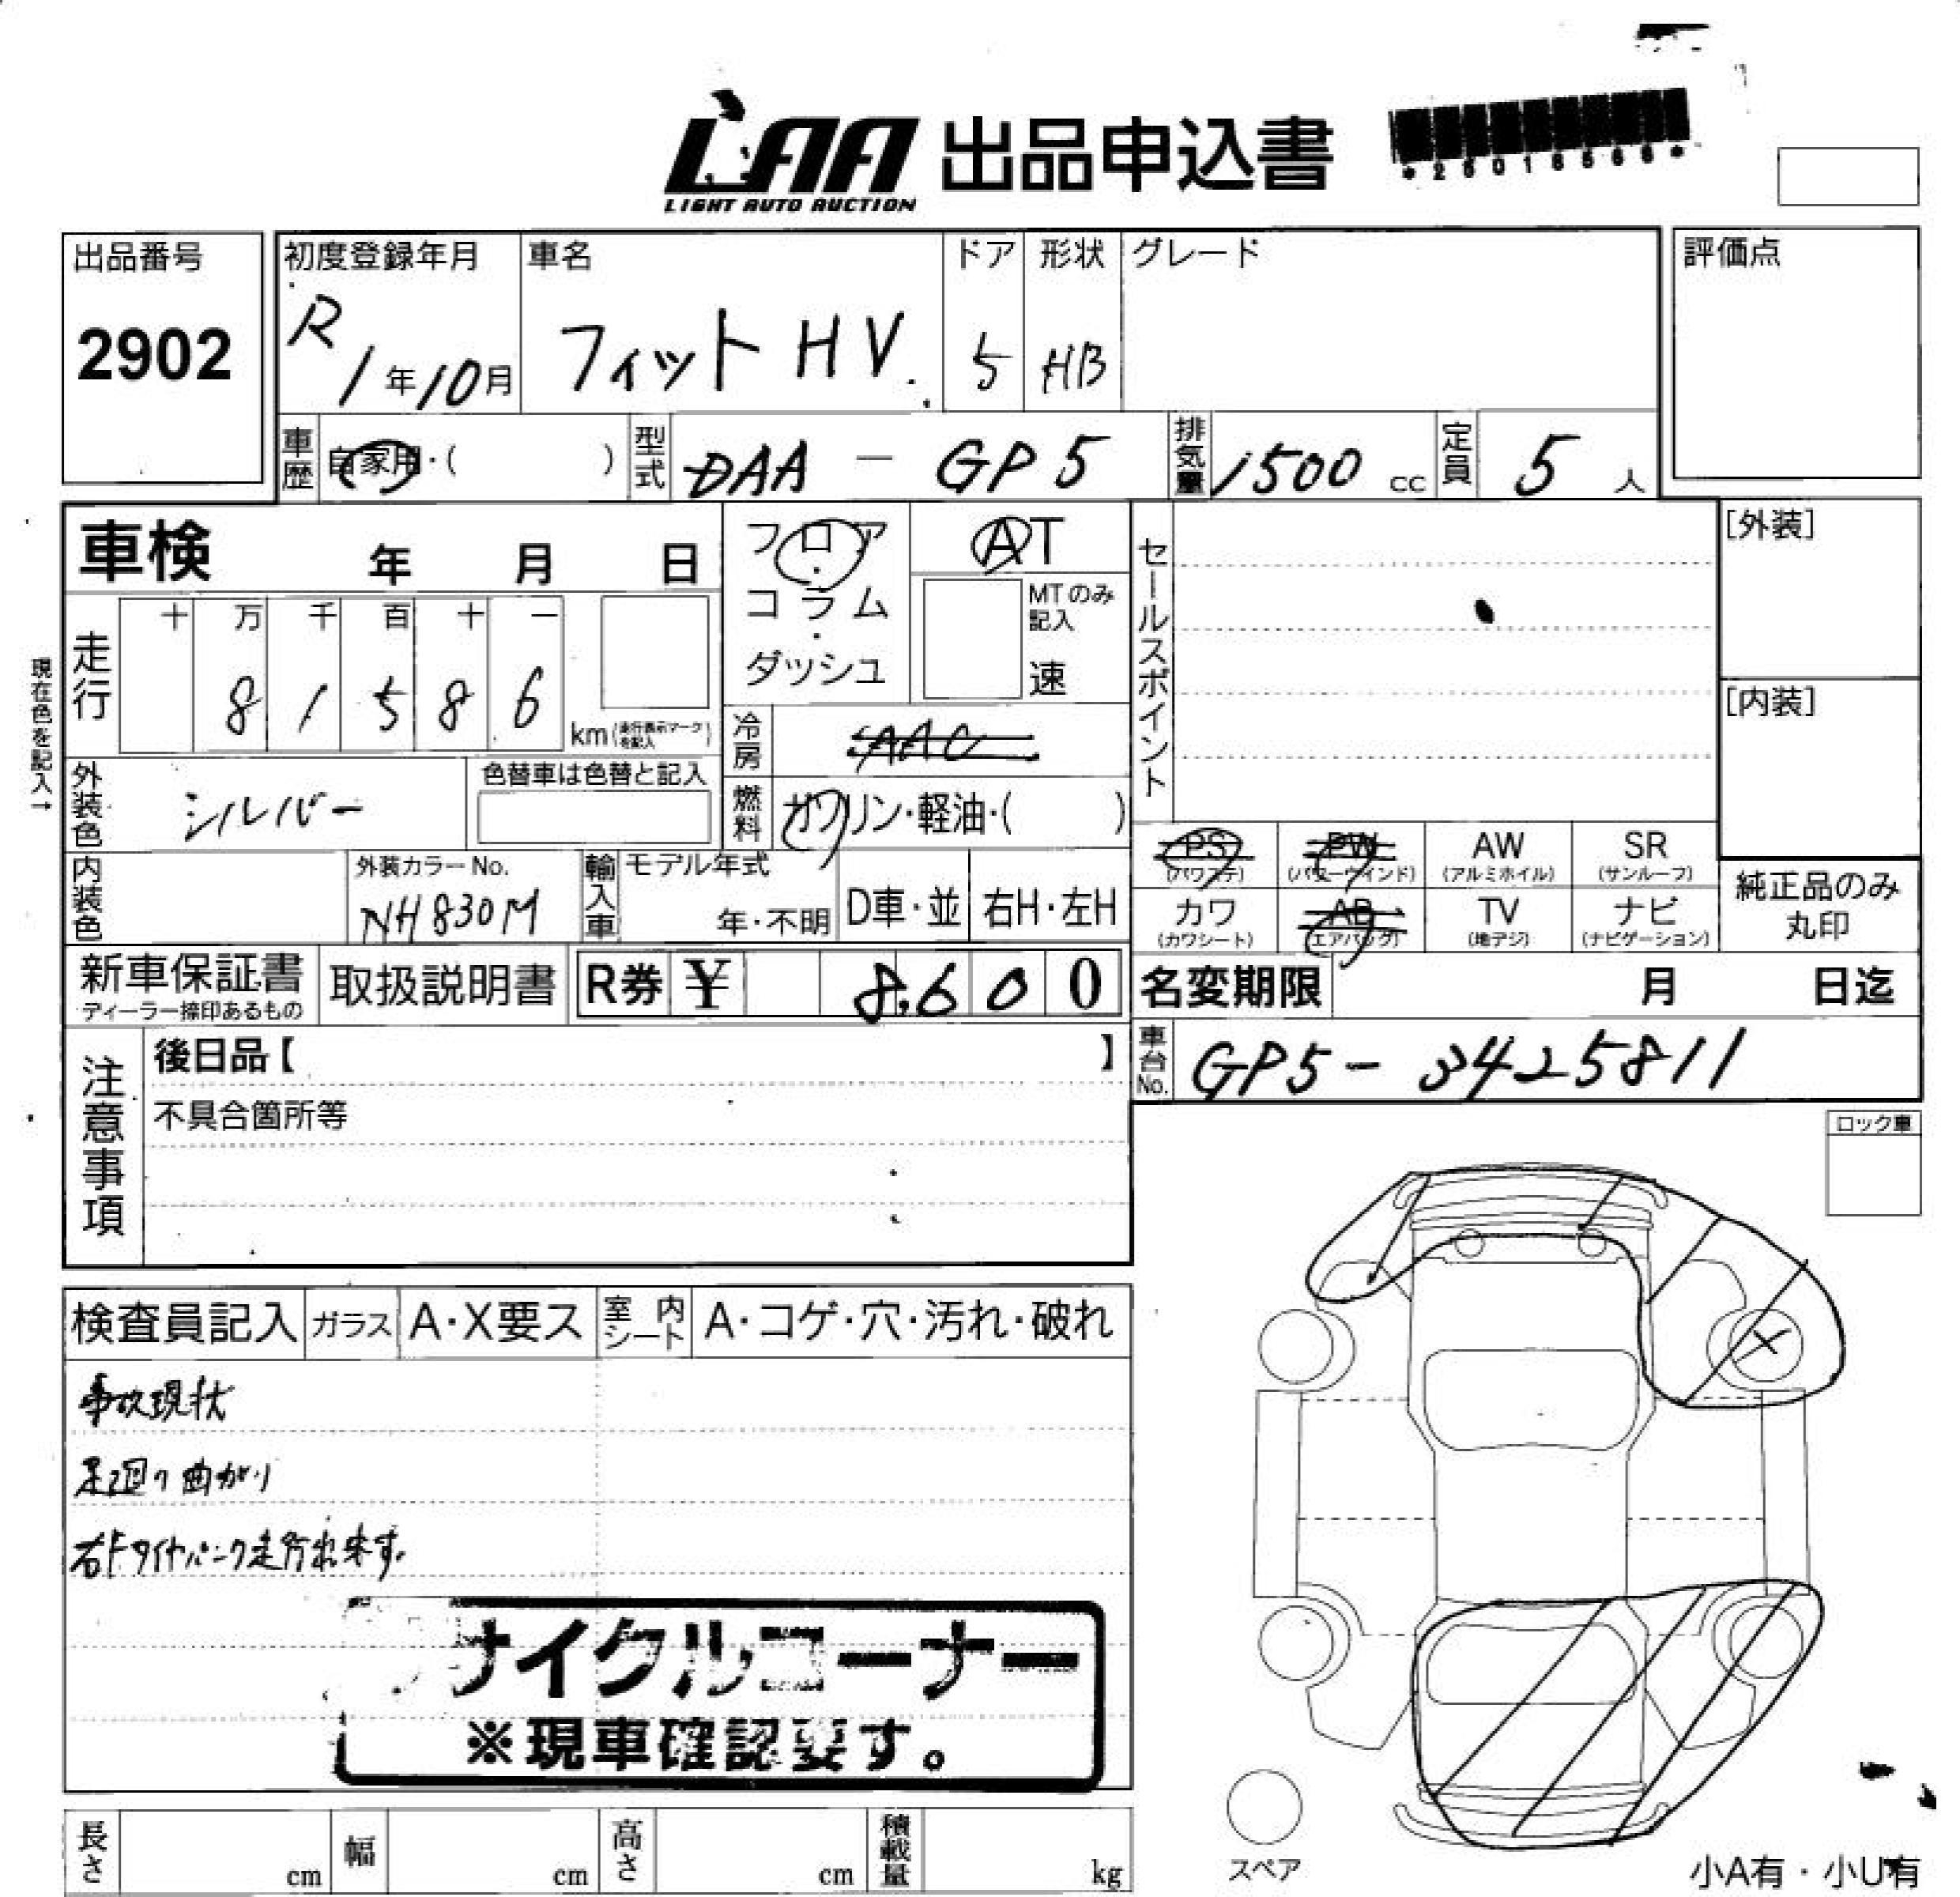 LAA 出品申込書
LIGHT AUTO AUCTION
出品番号
2902
初度登録年月
R 1年10月
車名
フィット HV.
ドア
5
形状
HB
グレード
評価点
車歴
自家用・( )
型式
DAA - GP5
排気量
1500 cc
定員
5 人
車検 年 月 日
フロア・コラム・ダッシュ
AT
MTのみ記入
速
セールスポイント
[外装]
[内装]
現在色を記入→
走行
十 万 千 百 十 一
8 1 5 8 6
km (走行表示マークを記入)
冷房
AAC
外装色
シルバー
色替車は色替と記入
燃料
ガソリン・軽油・( )
PS (パワステ)
PW (パワーウィンド)
AW (アルミホイル)
SR (サンルーフ)
カワ (カワシート)
AB (エアバッグ)
TV (地デジ)
ナビ (ナビゲーション)
純正品のみ丸印
内装色
外装カラーNo.
NH830M
輸入車
モデル年式
年・不明
D車・並
右H・左H
新車保証書
ディーラー捺印あるもの
取扱説明書
R券 ¥ 8,600
名変期限 月 日迄
車台No.
GP5-3425811
注意事項
後日品【 】
不具合箇所等
ロック車
検査員記入
ガラス
A・X要ス
室内シート
A・コゲ・穴・汚れ・破れ
事故現状
足廻り曲がり
右Fタイヤパンク走行出来ず。
サイクルコーナー
※現車確認要す。
長さ cm
幅 cm
高さ cm
積載量 kg
スペア
小A有・小U有